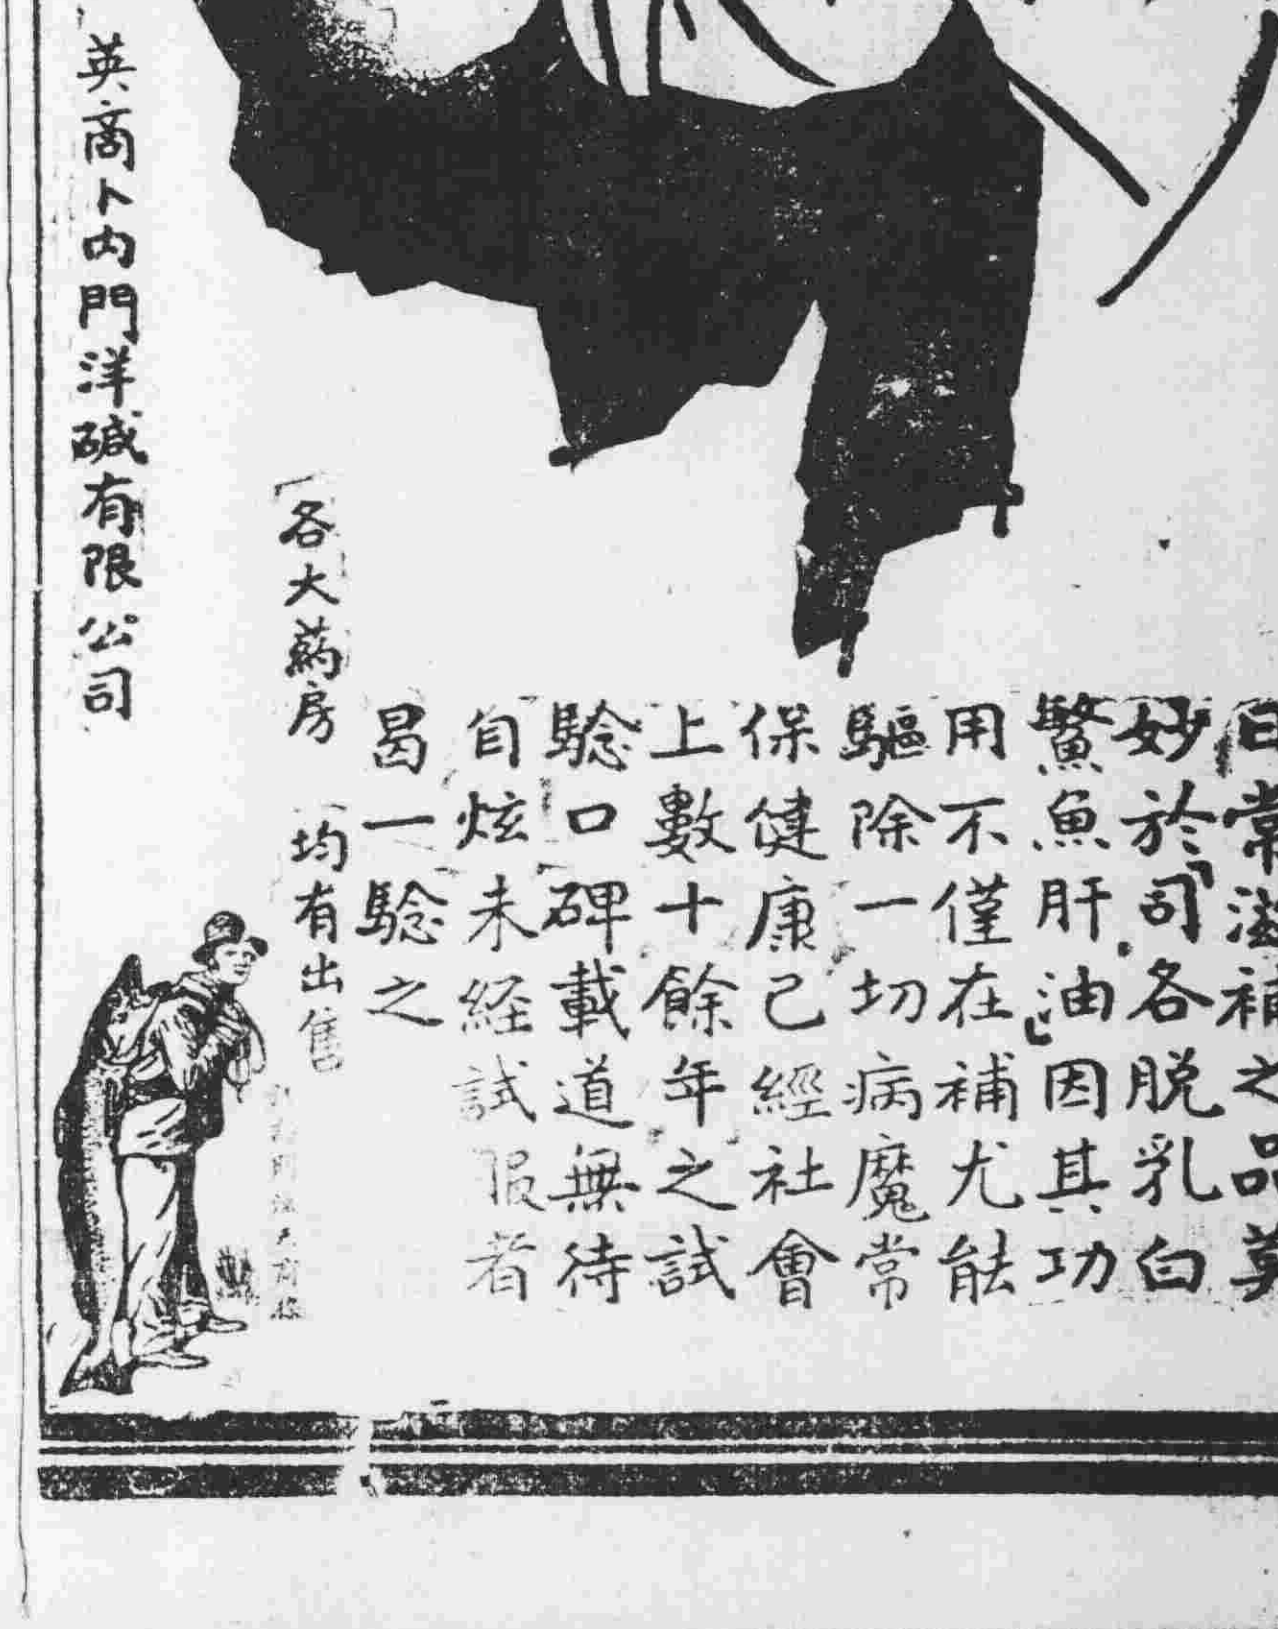 日常滋補之品莫
妙於「司各脱乳白
鰵魚肝油」因其功
用不僅在補尤能
驅除一切病魔常
保健康己經社會
上數十餘年之試
騐口碑載道無待
自炫未経試服者
曷一騐之
各大藥房 均有出售
英商卜内門洋碱有限公司